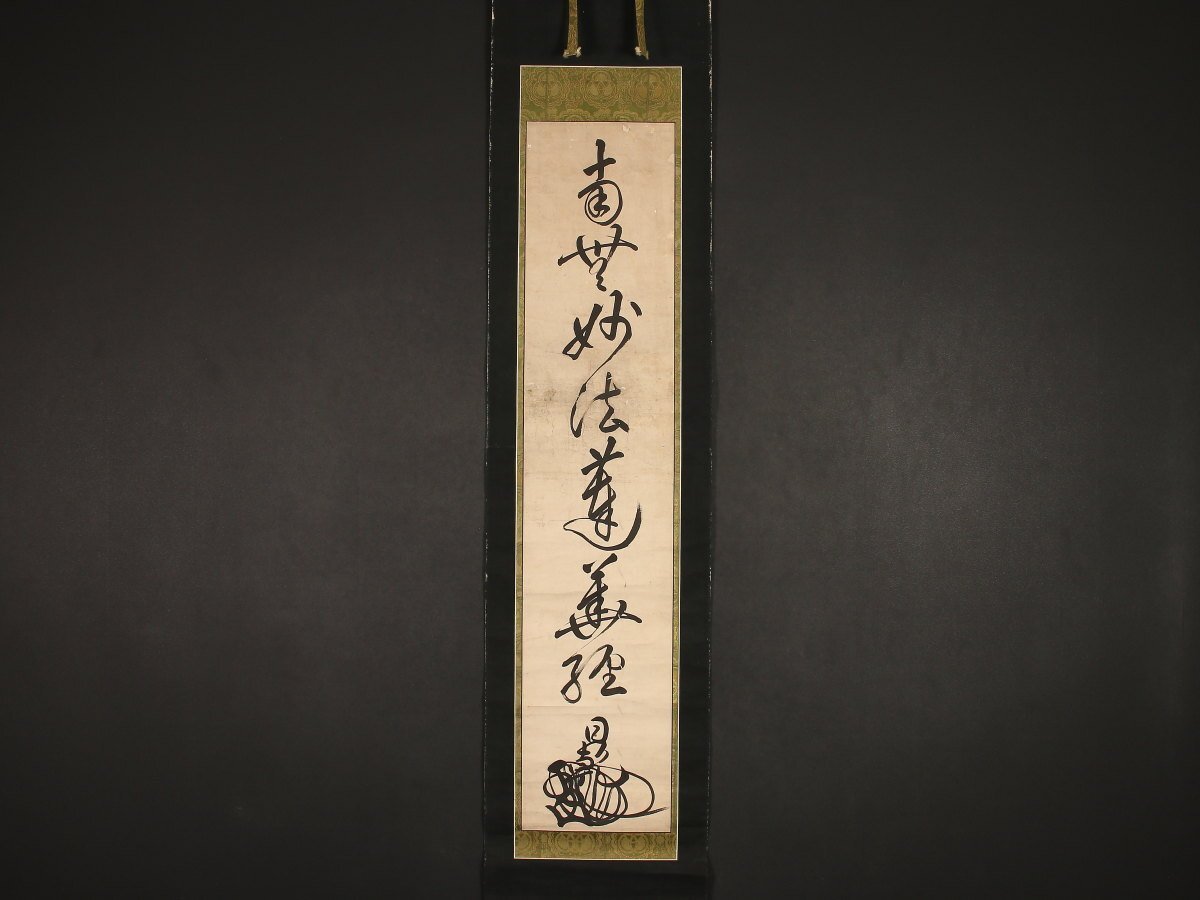 南無妙法蓮華經
日